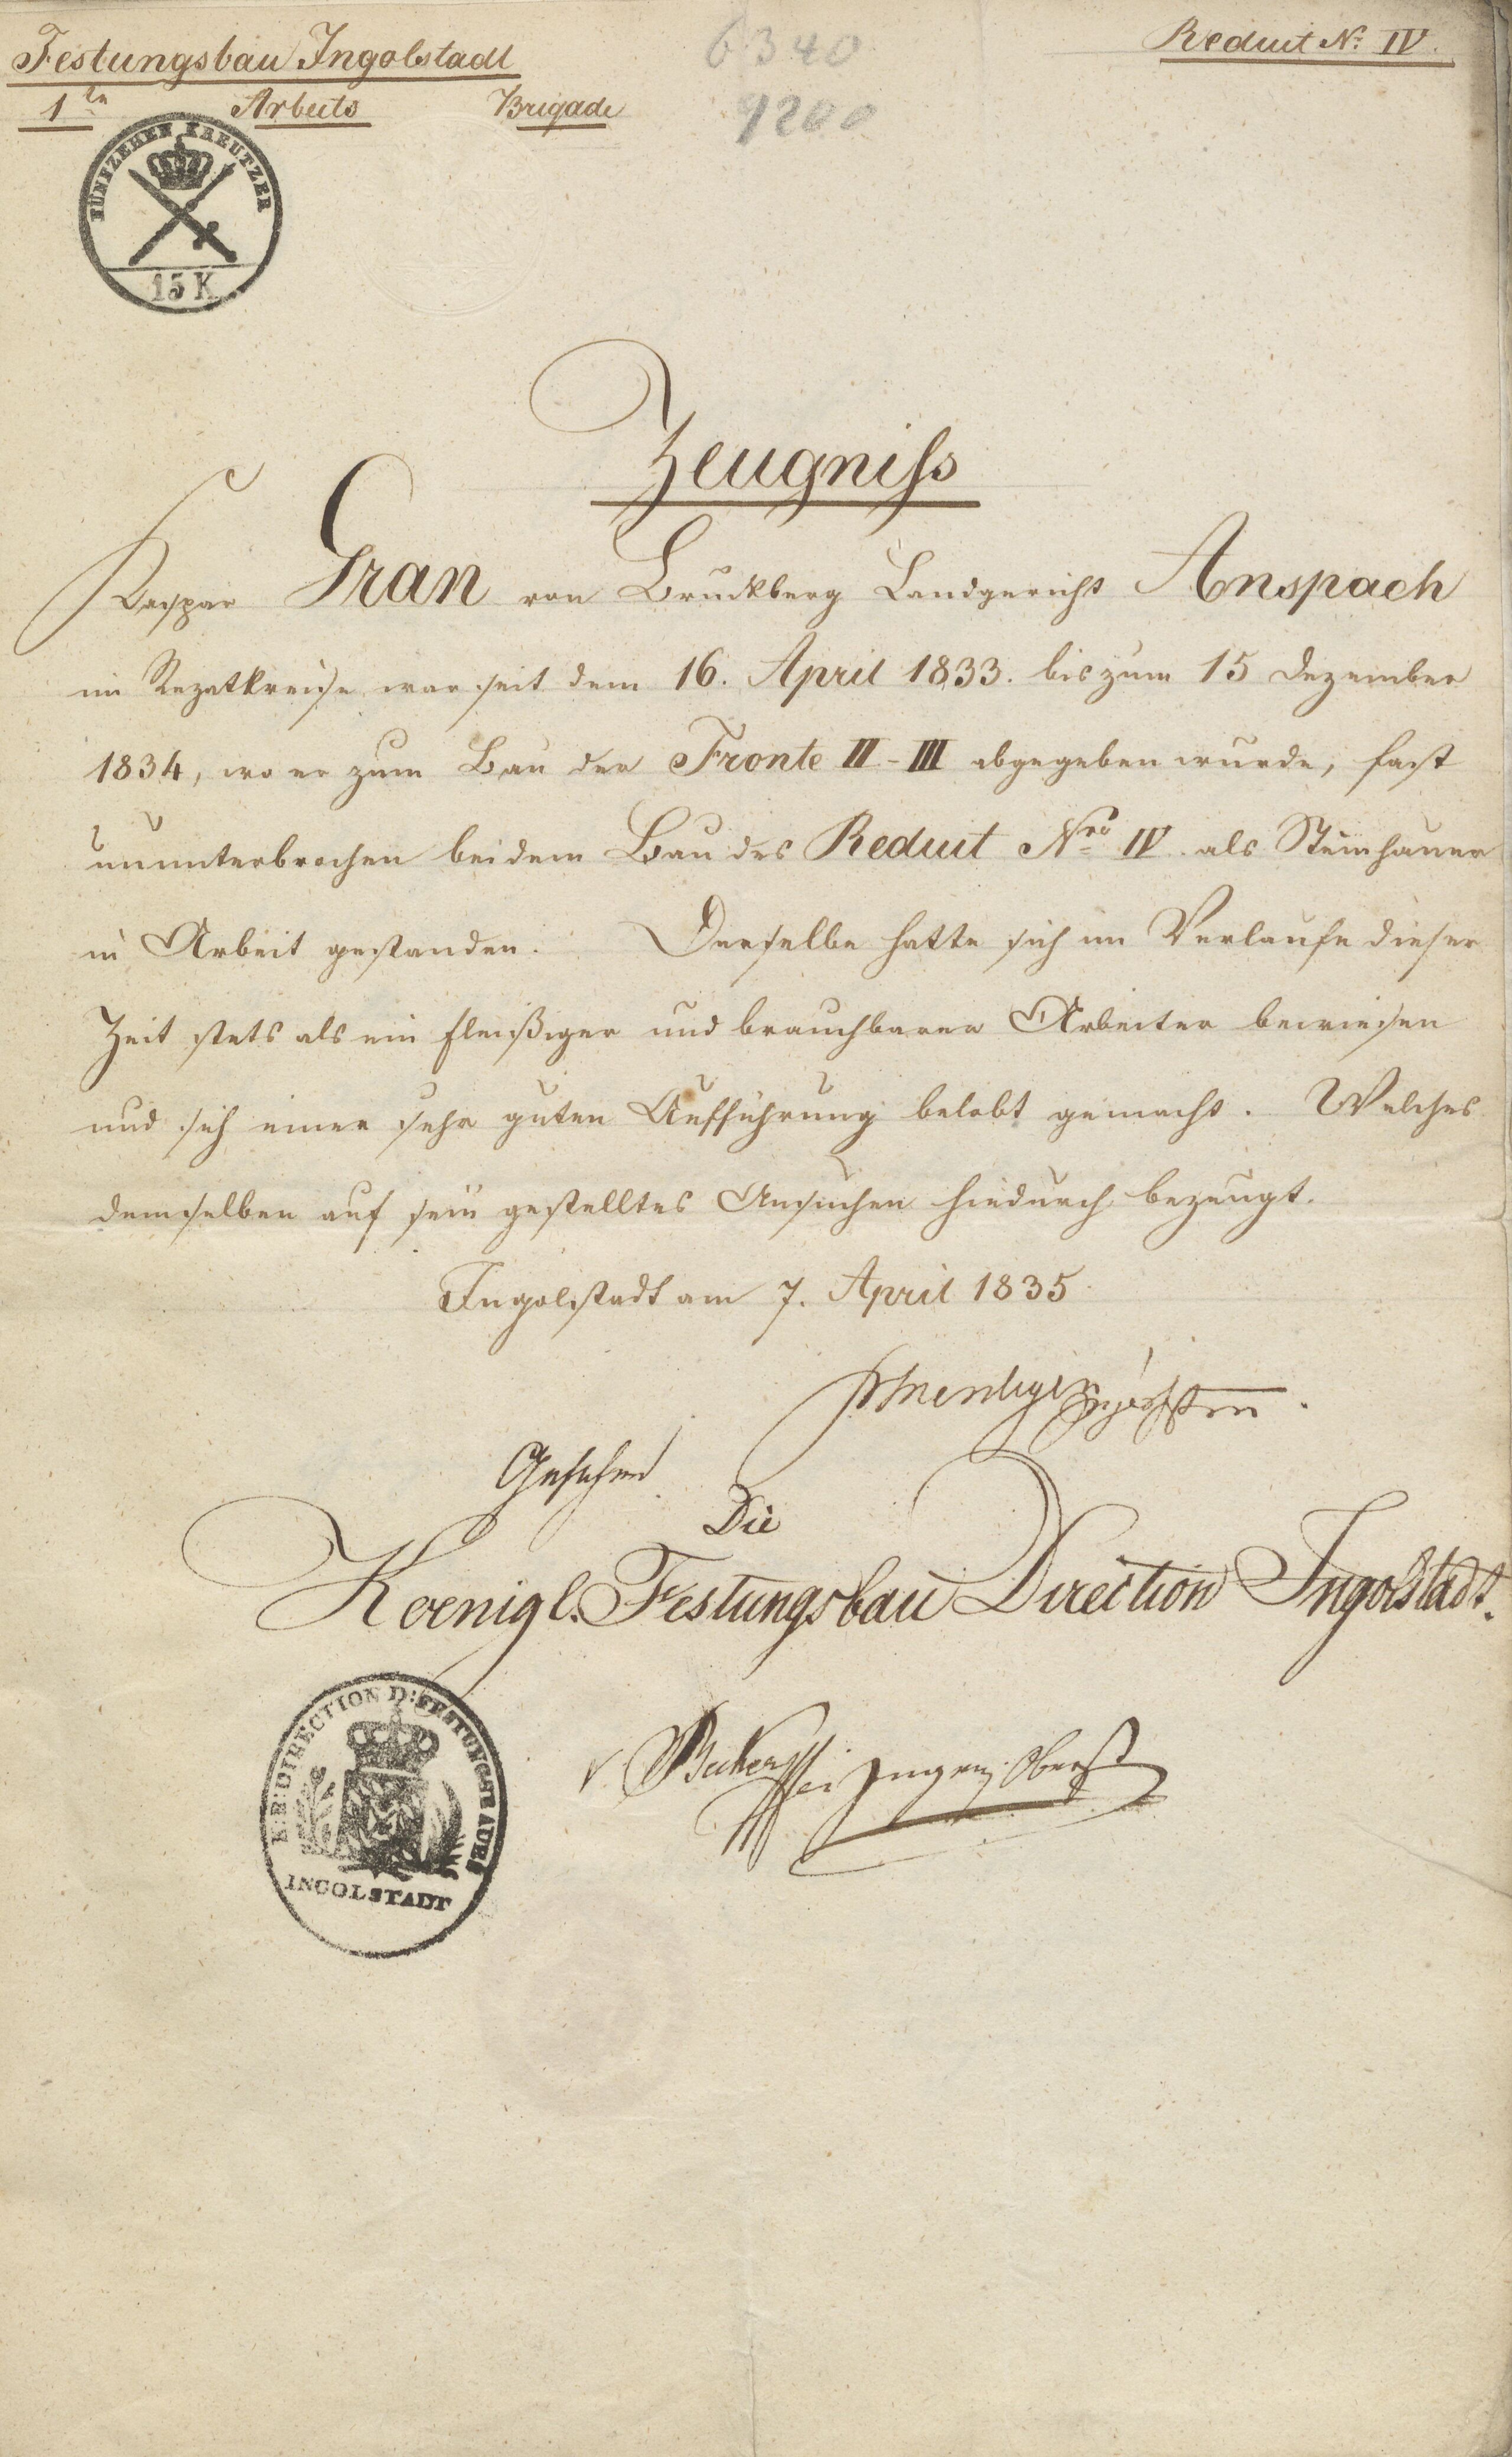 Festungsbau Ingolstadt
6340
Reduit No: IV.
1te Arbeits Brigade
9200
FÜNFZEHEN KREUTZER
15 K
Zeugniſs
Kaspar Gran von Bruckberg Landgerichts Anspach
im Rezatkreise war seit dem 16. April 1833. bis zum 15 Dezember
1834, wo er zum Bau der Fronte II-III abgegeben wurde, fast
ununterbrochen bei dem Bau des Reduit Nro IV. als Steinhauer
in Arbeit gestanden. Derselbe hatte sich im Verlaufe dieser
Zeit stets als ein fleißiger und brauchbarer Arbeiter bewiesen
und sich einer sehr guten Aufführung belobt gemacht. Welches
demselben auf sein gestelltes Ansuchen hiedurch bezeugt.
Ingolstadt am 7. April 1835.
Gesehen
Die
Koenigl. Festungsbau Direction Ingolstadt.
K: B: DIRECTION D: FESTUNGSBAUES
INGOLSTADT
v. Beckers Ingen: Oberst